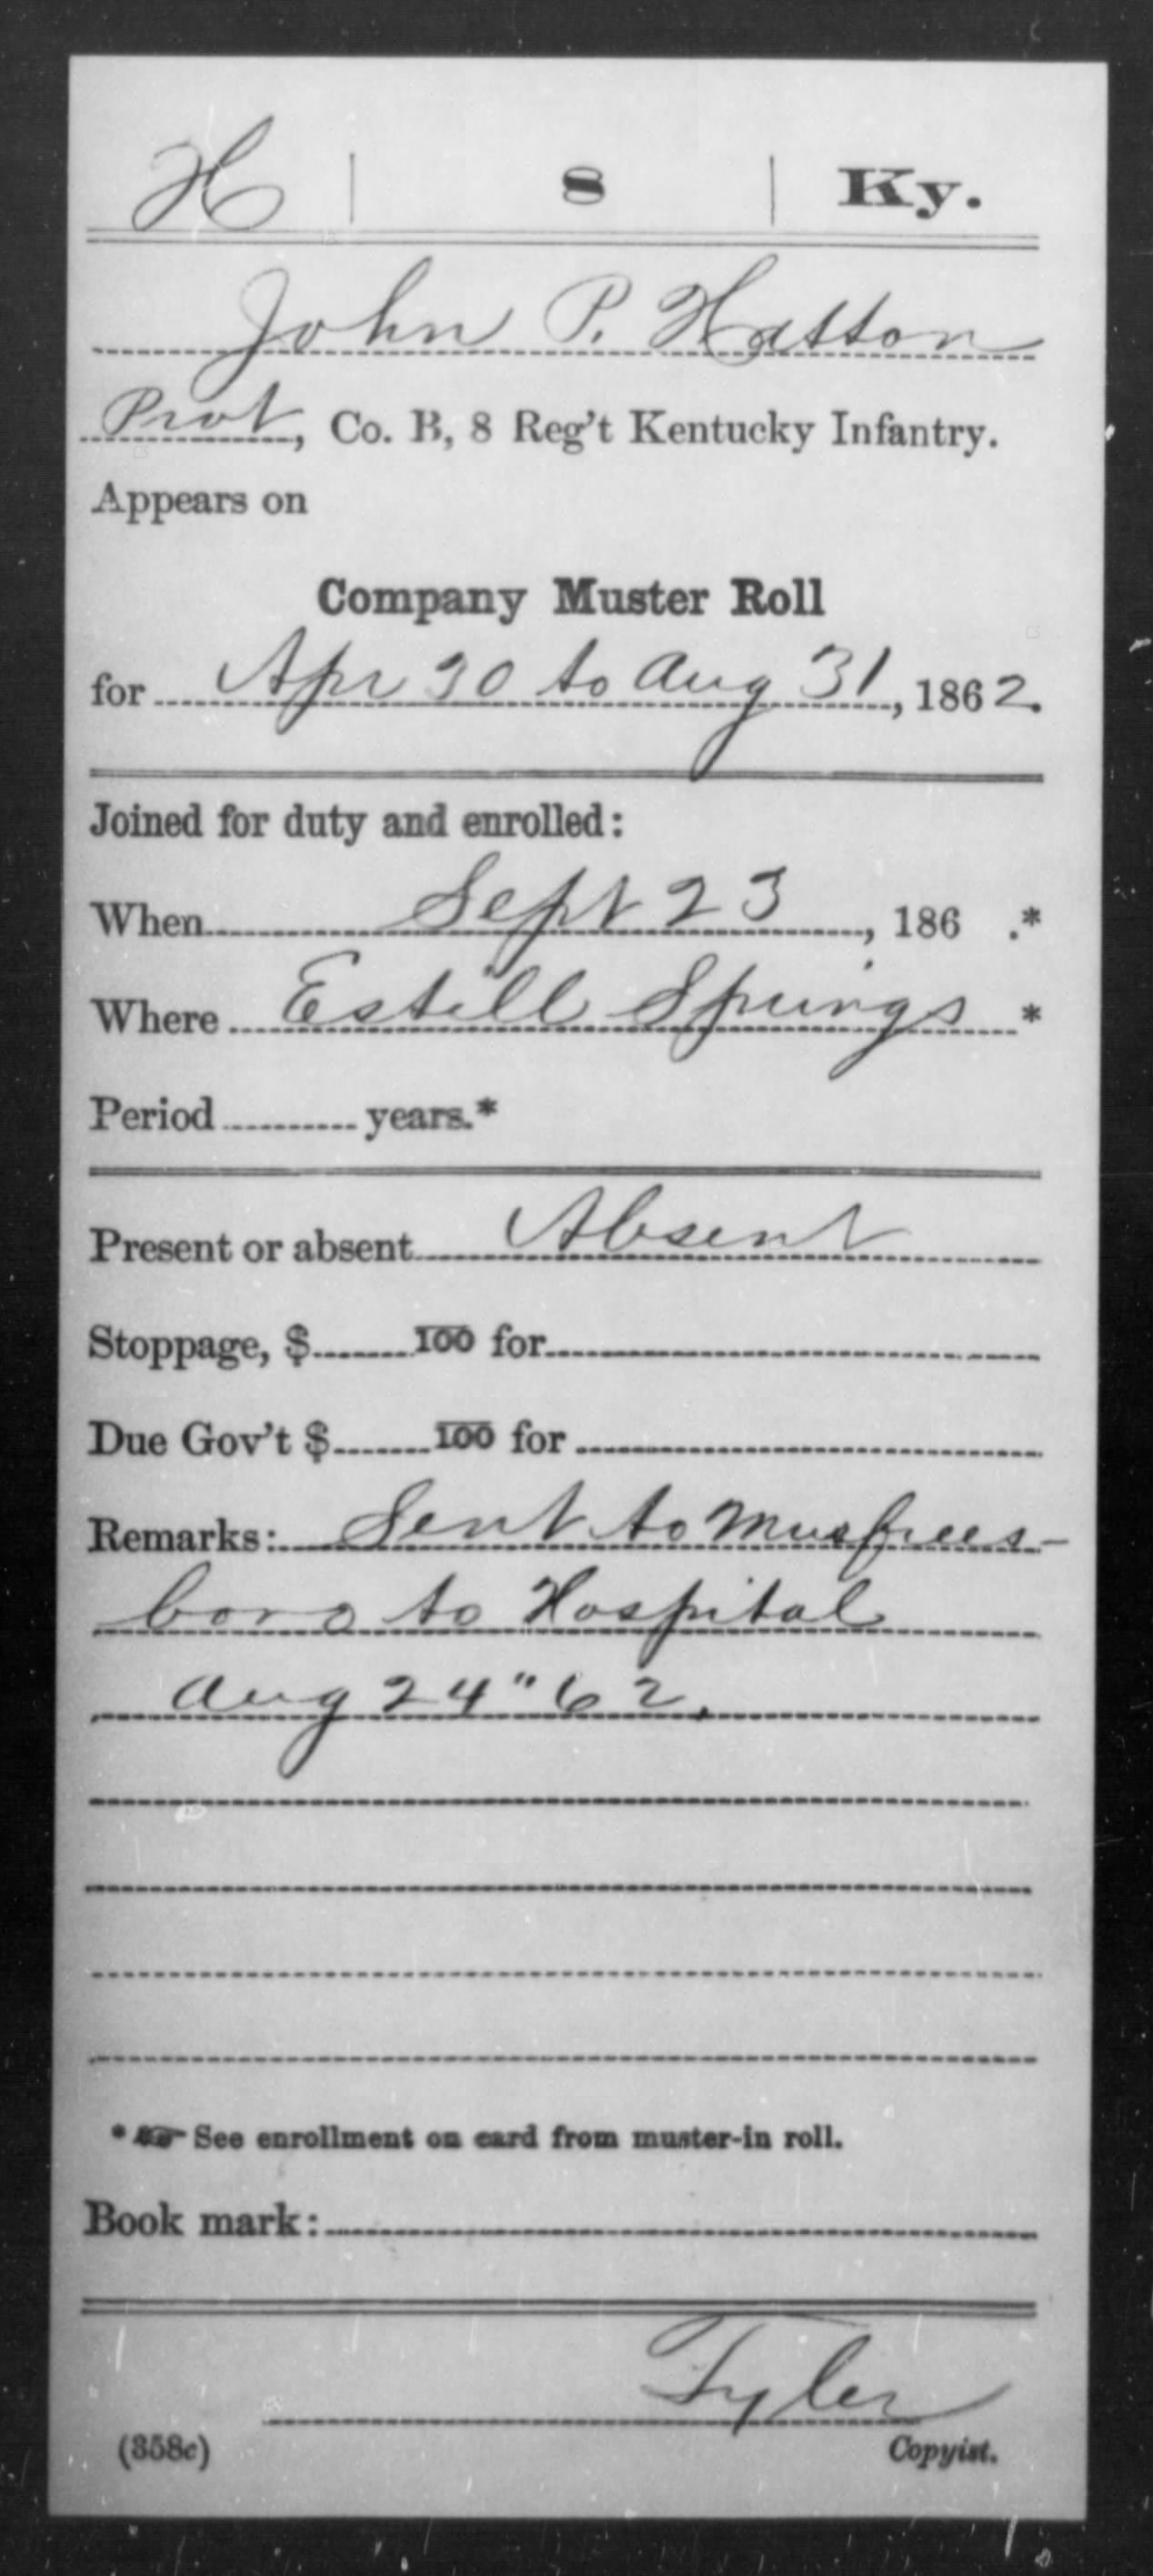 H | 8 | Ky.
John P. Hatton
Pvt, Co. B, 8 Reg't Kentucky Infantry.
Appears on
Company Muster Roll
for Apr 30 to Aug 31, 1862.
Joined for duty and enrolled:
When Sept 23, 186 .*
Where Estill Springs *
Period years.*
Present or absent Absent
Stoppage, $ 100 for
Due Gov't $ 100 for
Remarks: Sent to Murfrees-
boro to Hospital
Aug 24" 62.
* ☞ See enrollment on card from muster-in roll.
Book mark:
Tyler
(358c) Copyist.